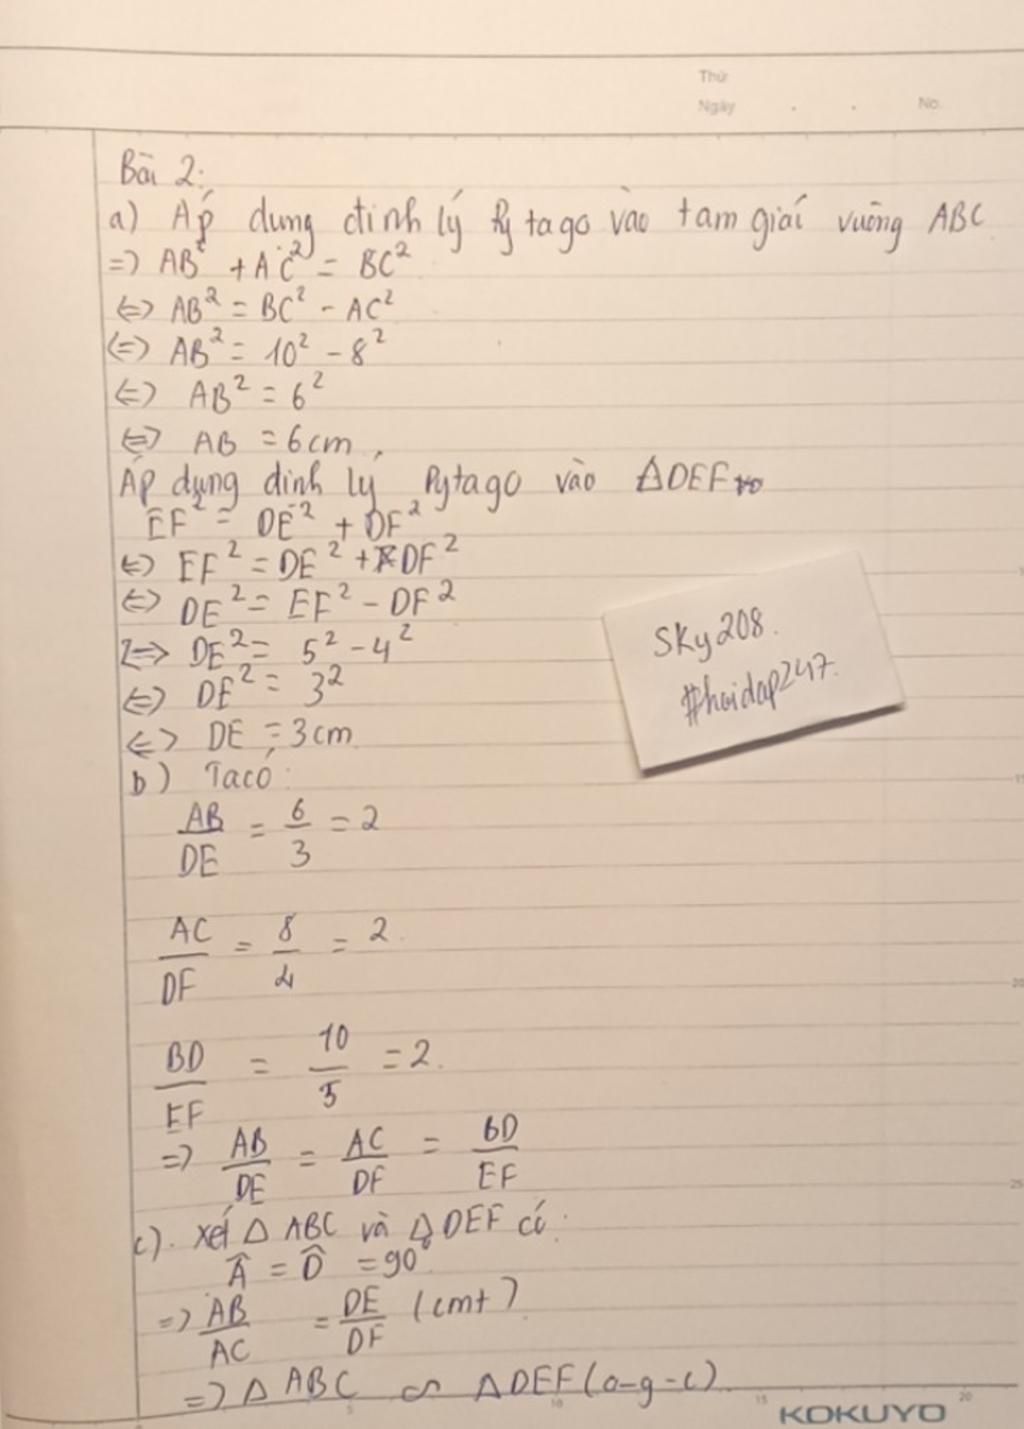 Thứ
Ngày . . No.
Bài 2:
a) Áp dung đinh lý Pytago vào tam giái vuông ABC
=> AB² + AC² = BC²
<=> AB² = BC² - AC²
<=> AB² = 10² - 8²
<=> AB² = 6²
<=> AB = 6cm,
Áp dụng dinh lý Pytago vào ΔDEF
EF² = DE² + DF²
<=> EF² = DE² + DF²
<=> DE² = EF² - DF²
<=> DE² = 5² - 4²
<=> DE² = 3²
<=> DE = 3cm
Sky208.
#hoidap247.
b) Ta có:
AB/DE = 6/3 = 2
AC/DF = 8/4 = 2.
BD/EF = 10/5 = 2.
=> AB/DE = AC/DF = BD/EF
c). xét Δ ABC và Δ DEF có:
Â = D̂ = 90°
=> AB/AC = DE/DF (cmt)
=> Δ ABC ∽ ΔDEF (c-g-c).
5 10 15 20
KOKUYO